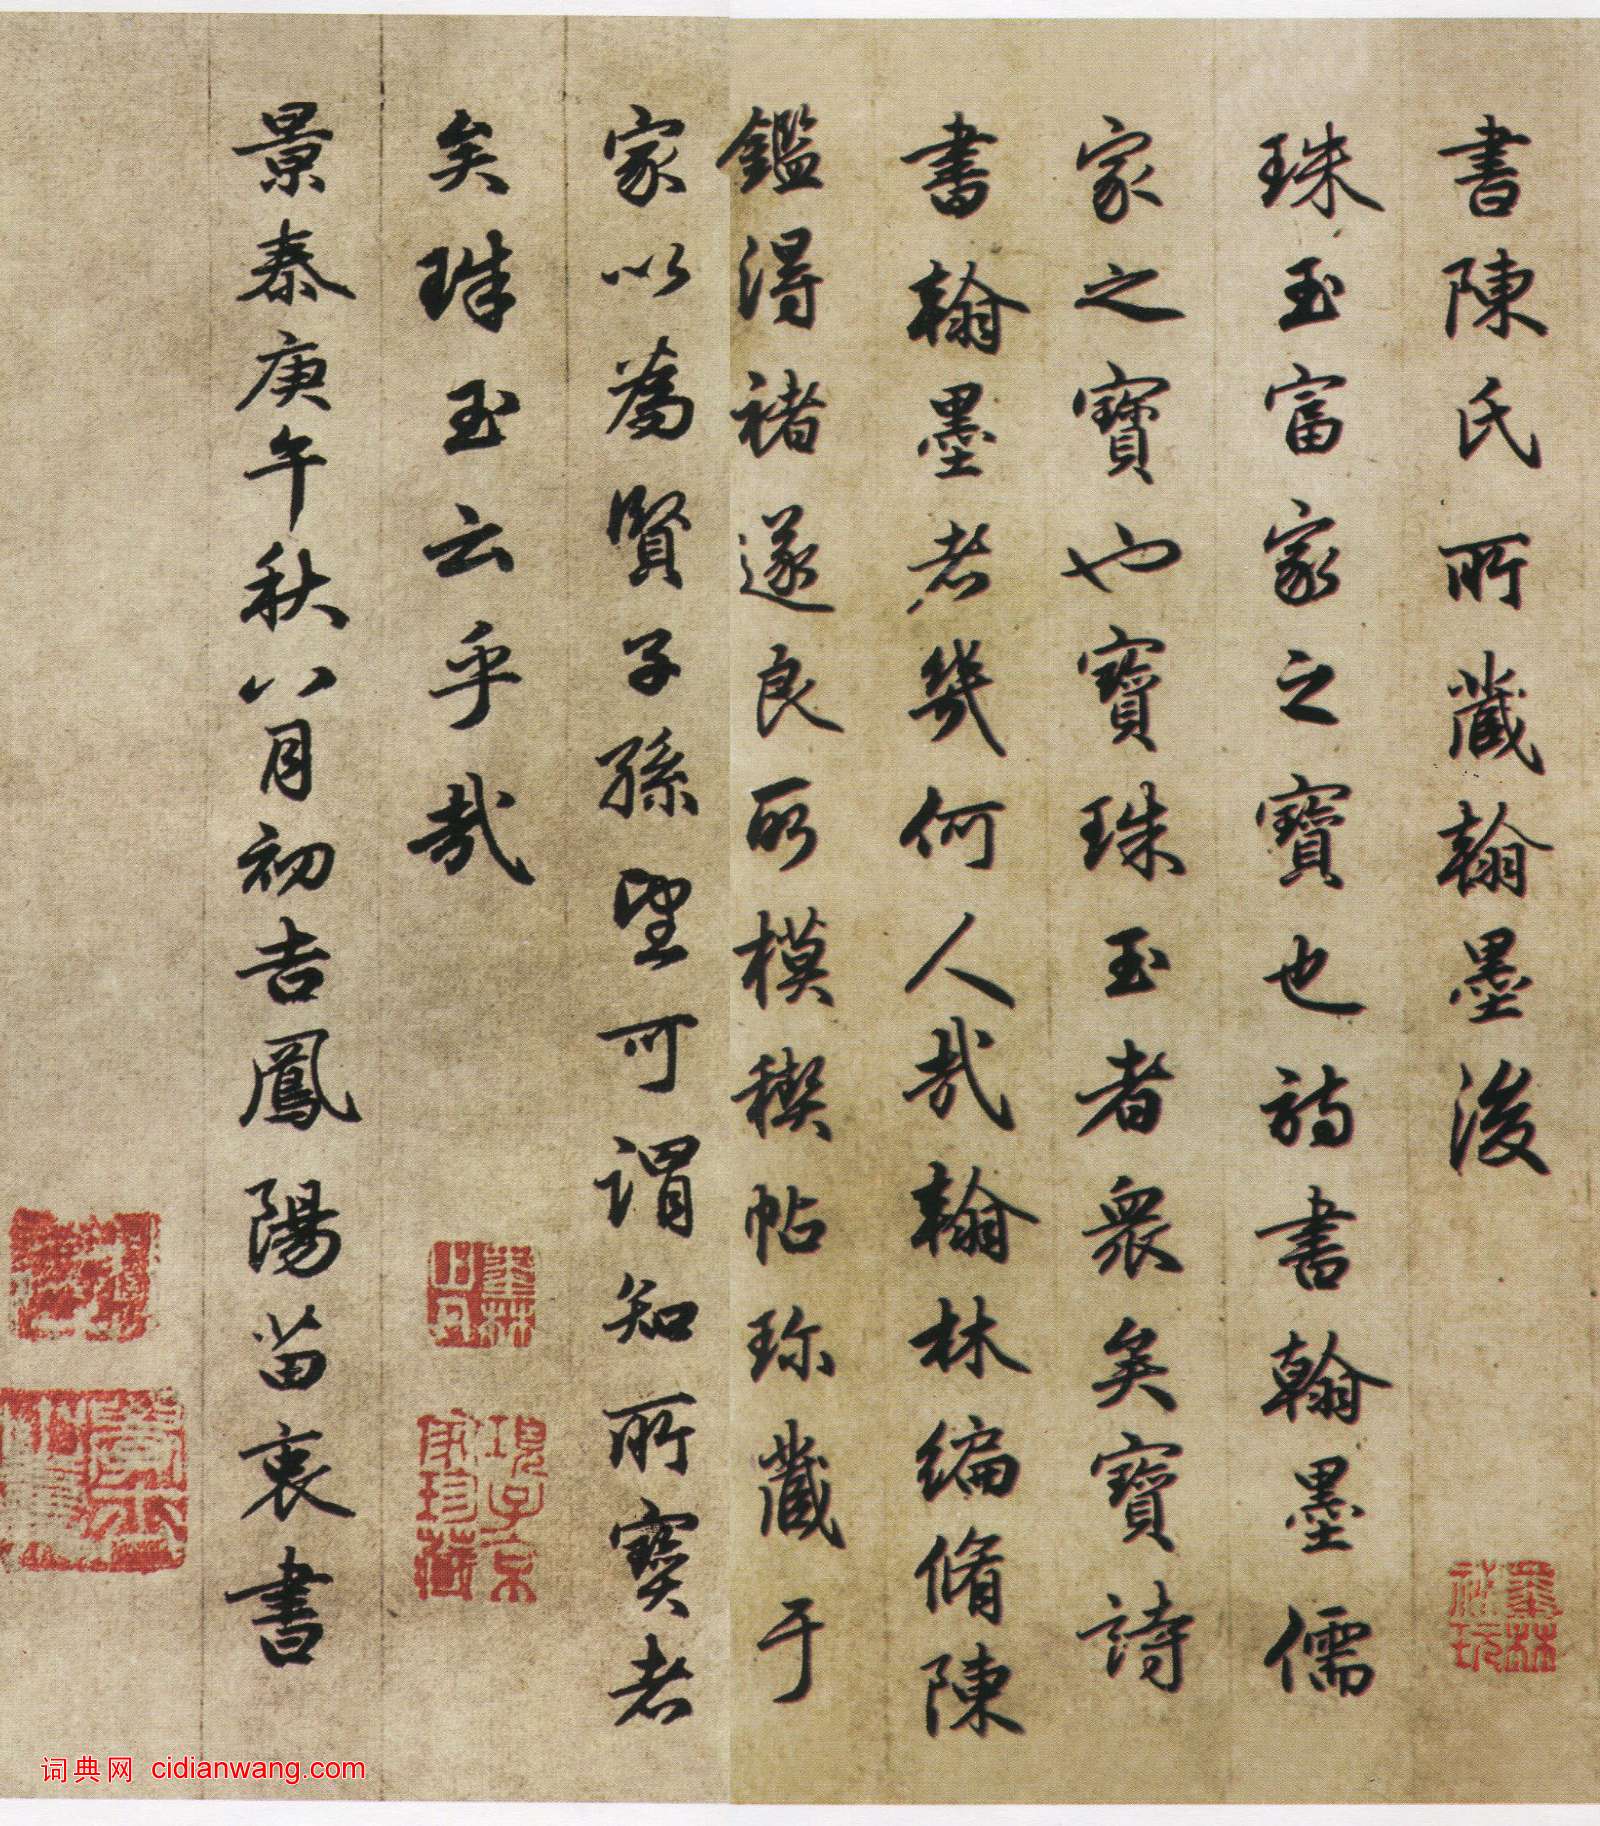 書陳氏所藏翰墨後
珠玉富家之寶也詩書翰墨儒
家之寶也寶珠玉者衆矣寶詩
書翰墨者幾何人哉翰林編脩陳
鑑得褚遂良所模稧帖珎藏于
家以為賢子孫望可謂知所寶者
矣珠玉云乎哉
景泰庚午秋八月初吉鳳陽苗衷書
項子京
家珍藏
词典网 cidianwang.com